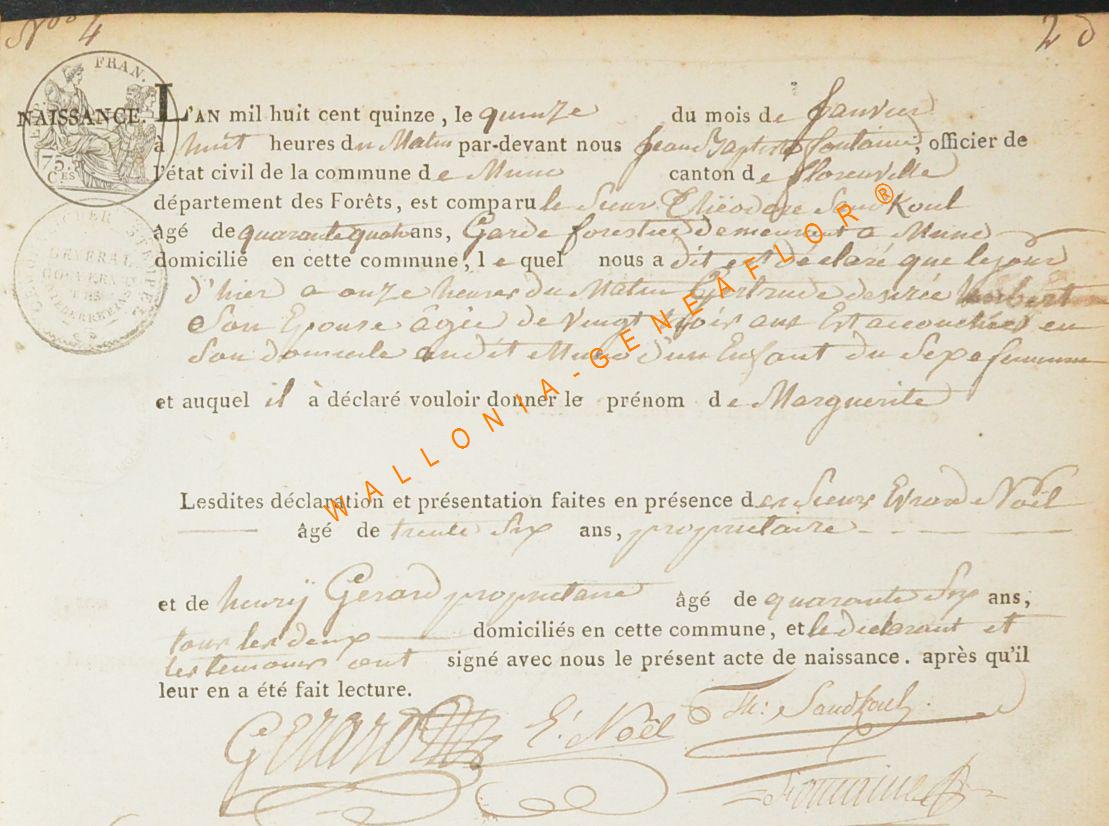 Nos 4
2
NAISSANCE. L'AN mil huit cent quinze, le quinze du mois de Janvier
à huit heures du Matin par-devant nous Jean Baptiste Fontaine, officier de
l'état civil de la commune de Muno canton de florenville
département des Forêts, est comparu le Sieur Théodore Sandkoul
âgé de quarante quatre ans, Garde forestier demeurant a Muno
domicilié en cette commune, le quel nous a dit et declaré que le jour
d'hier a onze heures du Matin Gertrude desirée
Son Epouse âgée de vingt trois ans Est accouchée en
Son domicile audit Muno d'un Enfant du Sexe feminin
et auquel il à déclaré vouloir donner le prénom de Marguerite
Lesdites déclaration et présentation faites en présence des Sieurs Evrard Noël
âgé de trente Six ans, proprietaire
et de henrÿ Gerard proprietaire âgé de quarante Six ans,
tous les deux domiciliés en cette commune, et le declarant et
les temoins ont signé avec nous le présent acte de naissance. après qu'il
leur en a été fait lecture.
Gerard E: Noël Th: Sandkoul
Fontaine
FRAN.
75 CES
GENERAL
GOUVERN
WALLONIA-GENEAFLOR®